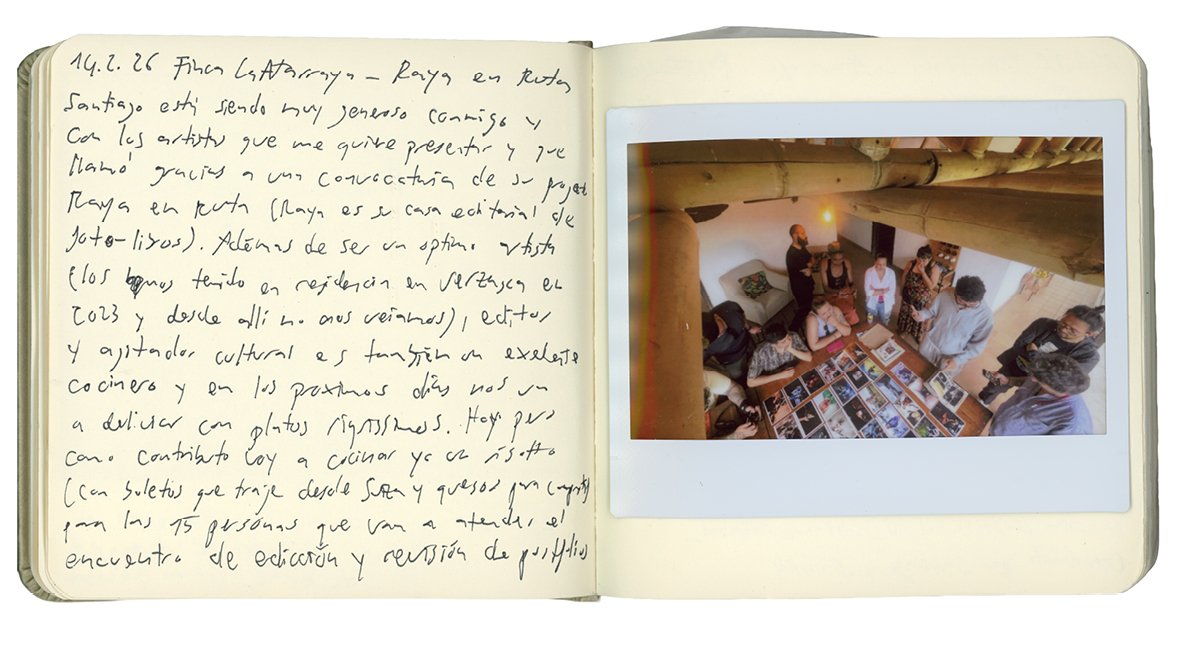 14.2.26 Finca La Atarraya – Raya en Ruta
Santiago está siendo muy generoso conmigo y
con los artistas que me quiere presentar y que
llamó gracias a una convocatoria de su proyecto
Raya en Ruta (Raya es su casa editorial de
foto-libros). Además de ser un optimo artista
(los tenido en residencia en Verzasca en
2023 y desde allí no nos veíamos), editor
y agitador cultural es también un exelente
cocinero y en los proximos días nos va
a deliziar con platos riquissimos. Hoy pero
como contributo voy a cocinar yo un risotto
(con boletos que traje desde Suiza y quesos para compartir)
para las 15 persónas que van a atender el
encuentro de edicción y revisión de portfolios